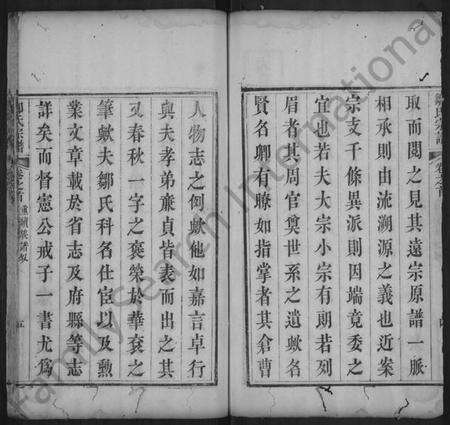 取而閱之見其遠宗原譜一脈
相承則由流溯源之義也近案
宗支千條異派則因端竟委之
宜也若夫大宗小宗有朝若列
眉者其周官奠世系之遺歟名
賢名卿有瞭如指掌者其倉曹
人物志之例歟他如嘉言卓行
與夫孝弟廉貞皆表而出之其
又春秋一字之褒榮於華袞之
筆歟夫鄒氏科名仕宦以及勲
業文章載於省志及府縣等志
詳矣而督憲公戒子一書尤爲
氏宗譜
卷之首
五
FamilySearch International